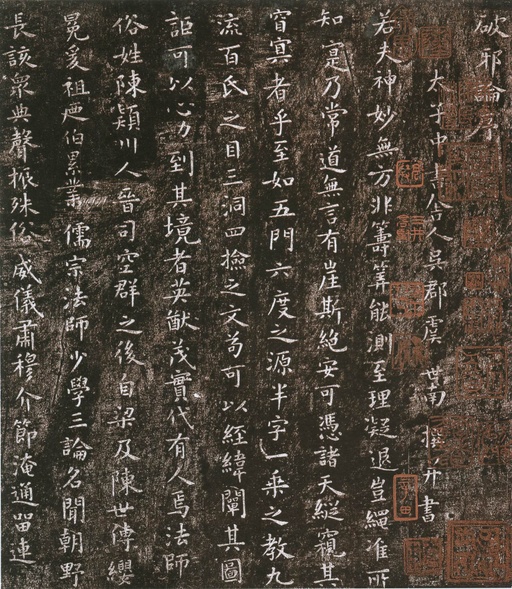 破邪論序
太子中書舍人吳郡虞世南撰并書
若夫神妙無方非籌筭能測至理凝邈豈繩准所
知寔乃常道無言有崖斯絕安可憑諸天縱窺其
窅冥者乎至如五門六度之源半字一乘之教九
流百氏之目三洞四撿之文苟可以經緯闡其圖
詎可以心力到其境者英猷茂實代有人焉法師
俗姓陳潁川人晉司空群之後自梁及陳世傳纓
冕爰祖及伯累業儒宗法師少學三論名聞朝野
長該眾典聲振殊俗威儀肅穆介節淹通留連